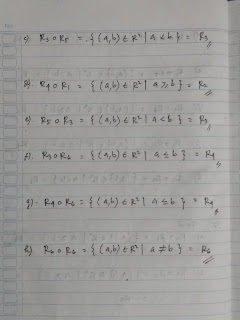 c) R₃ o R₅ = { (a,b) ∈ R² | a < b } = R₃
d) R₄ o R₁ = { (a,b) ∈ R² | a ≥ b } = R₂
e) R₅ o R₃ = { (a,b) ∈ R² | a < b } = R₃
f) R₃ o R₆ = { (a,b) ∈ R² | a ≤ b } = R₄
g) R₄ o R₆ = { (a,b) ∈ R² | a ≤ b } = R₄
h) R₆ o R₆ = { (a,b) ∈ R² | a ≠ b } = R₆